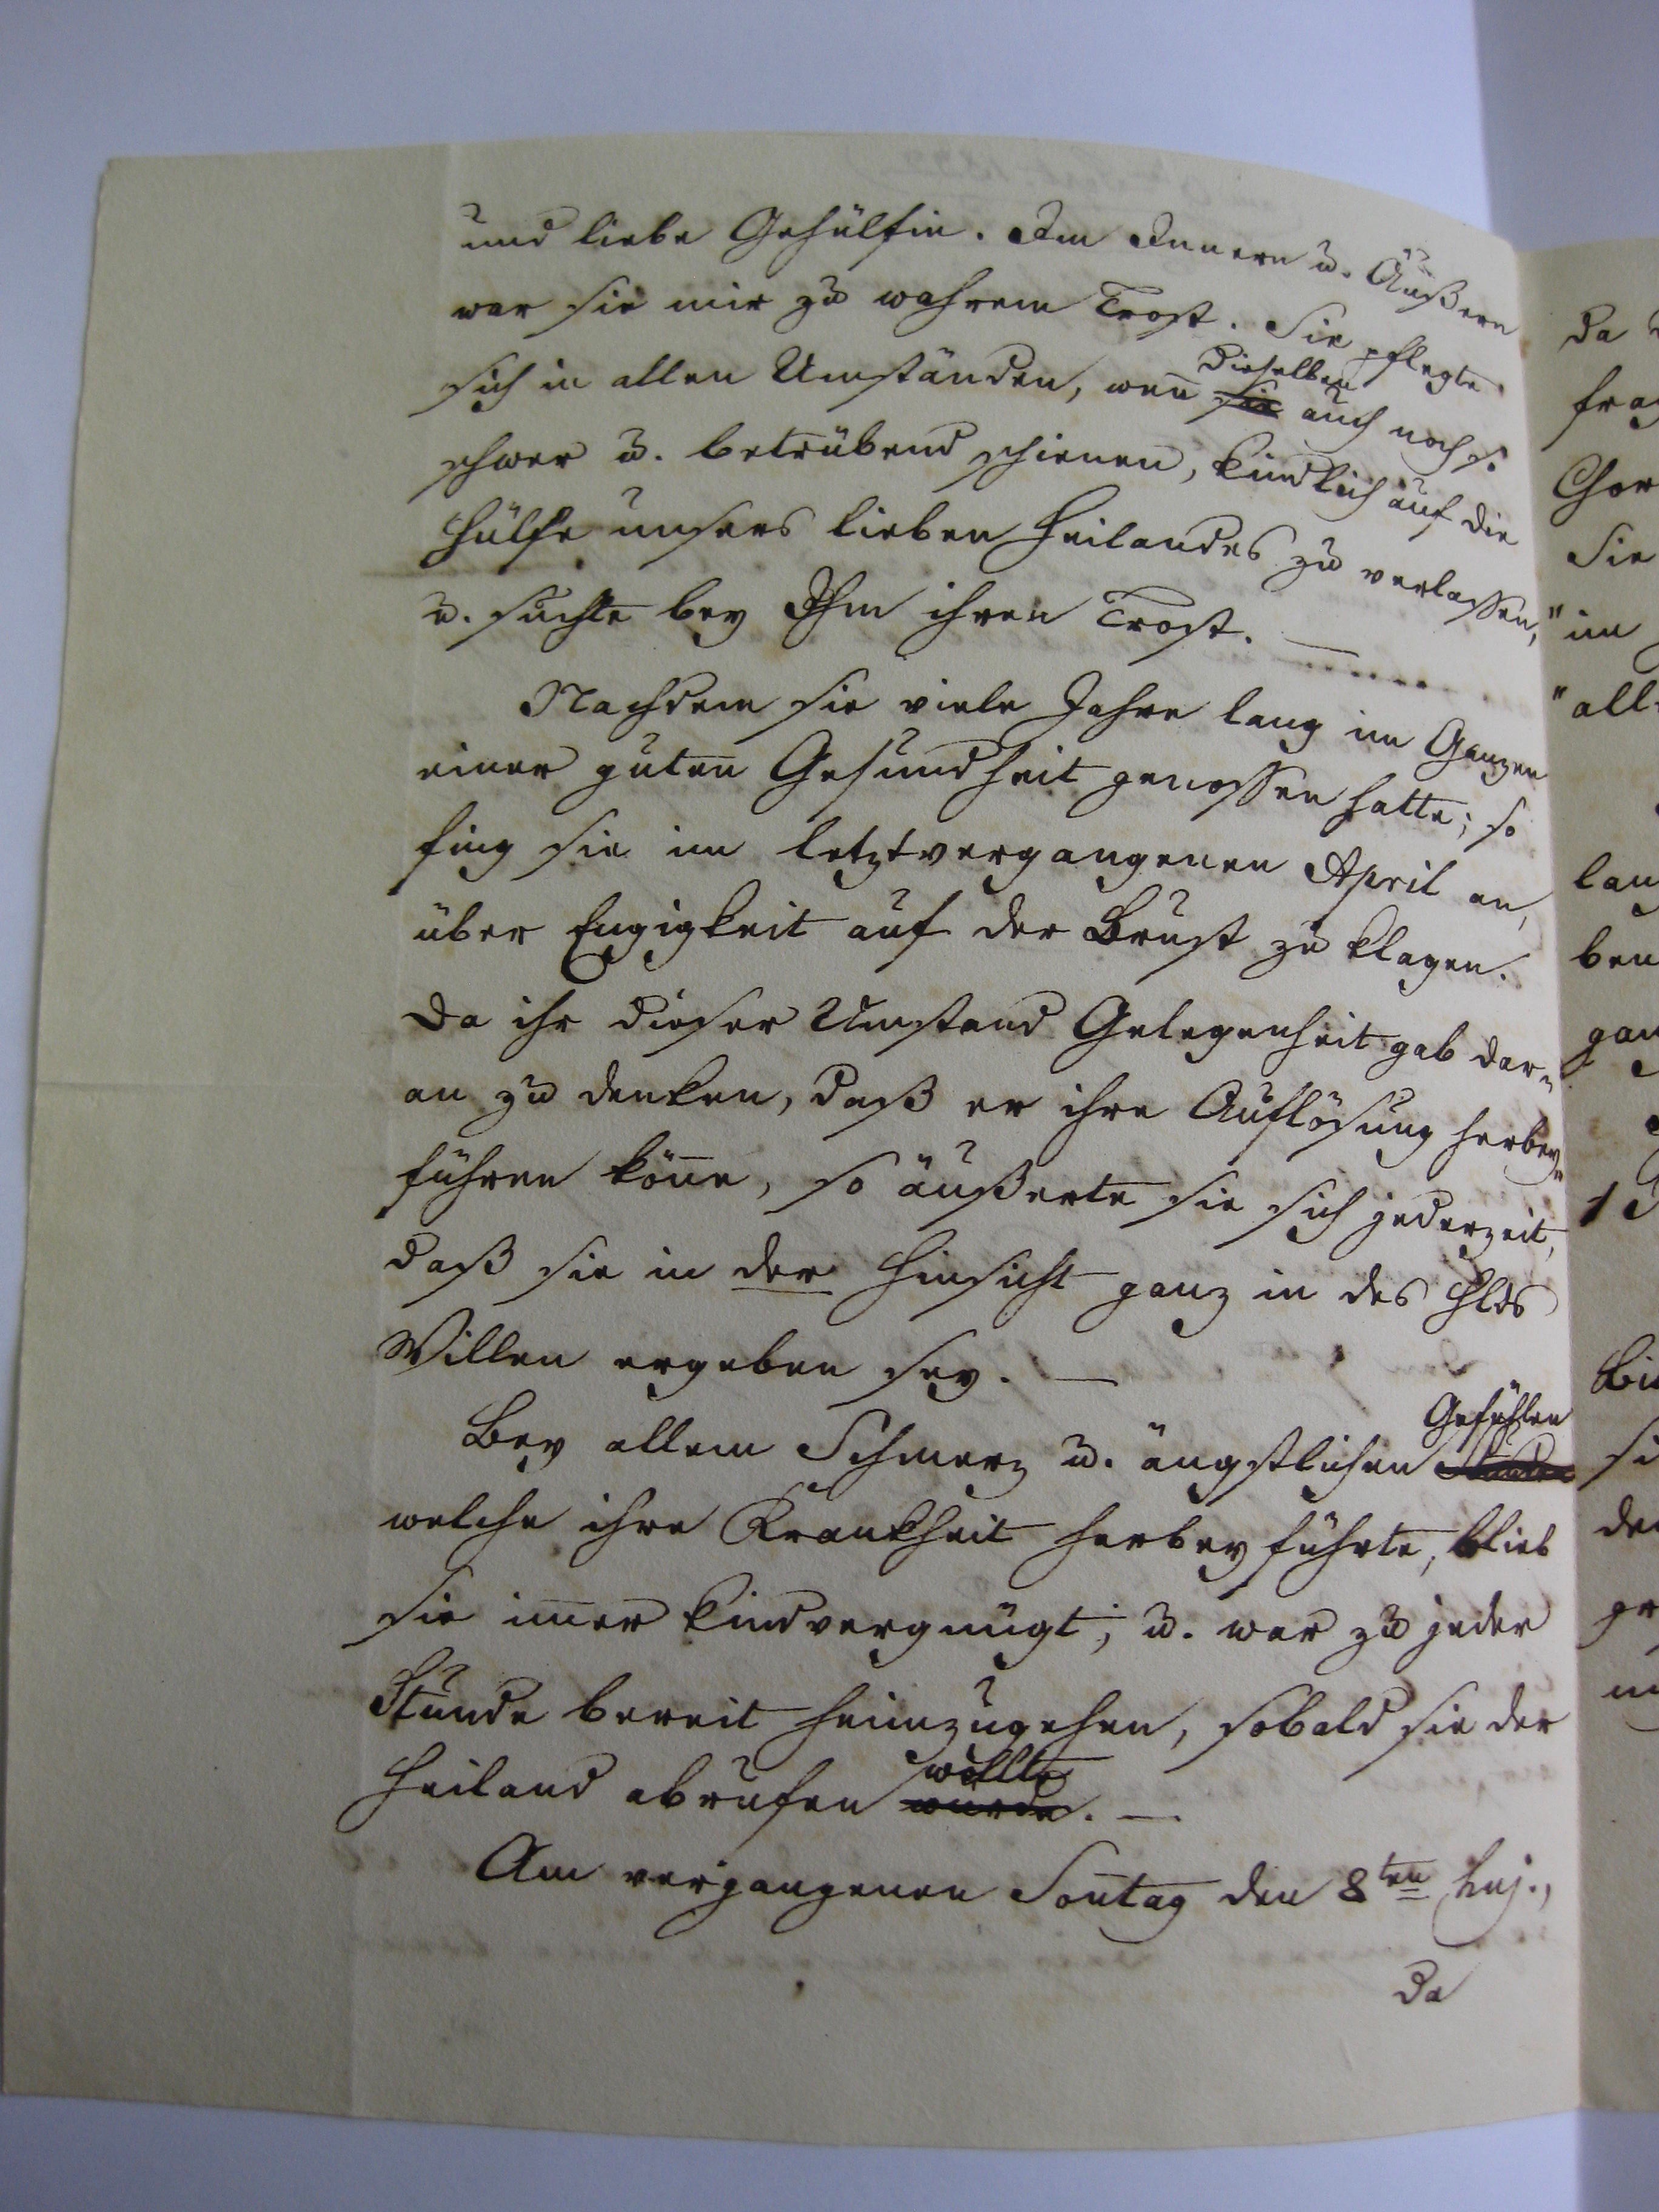 und liebe Gehülfin. Im Innern u. Äußern
war sie mir zu wahrem Trost. Sie pflegte
sich in allen Umständen, wen̄ dieselben auch noch so
schwer u. betrübend schienen, kindlich auf die
Hülfe unsers lieben Heilandes zu verlassen,
u. suchte bey Ihm ihren Trost. —
Nachdem sie viele Jahre lang im Ganzen
einer guten Gesundheit genossen hatte; so
fing sie im letztvergangenen April an,
über Engigkeit auf der Brust zu klagen.
Da ihr dieser Umstand Gelegenheit gab dar=
an zu denken, daß er ihre Auflösung herbey=
führen kön̄e, so äußerte sie sich jederzeit,
daß sie in der Hinsicht ganz in des Hlds
Willen ergeben sey. —
Bey allem Schmerz u. ängstlichen Gefühlen
welche ihre Krankheit herbey führte, blieb
sie im̄er kindvergnügt; u. war zu jeder
Stunde bereit heimzugehen, sobald sie der
Heiland abrufen wollte wurde. —
Am vergangenen Son̄tag den 8ten huj.,
da
da
Chor
Sie
"im
"all=